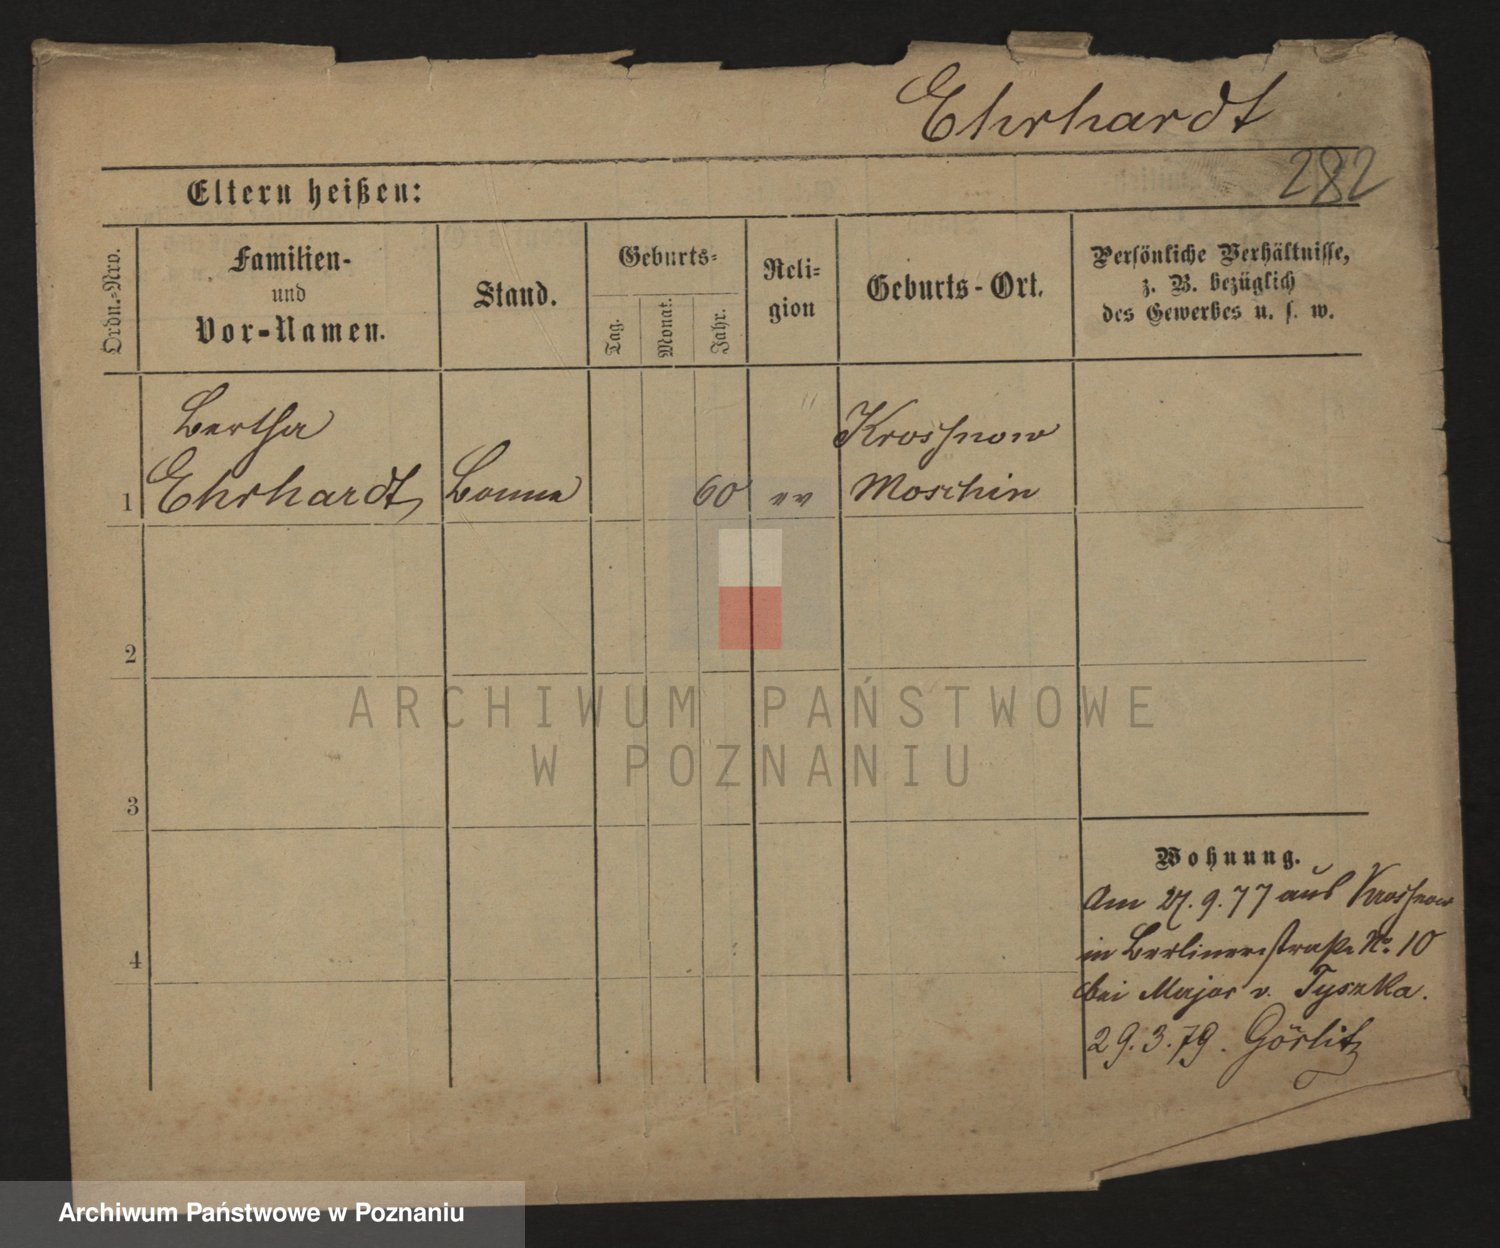 Ehrhardt
282
Eltern heißen:
Ordn.-Nro.
Familien-
und
Vor-Namen.
Stand.
Geburts-
Tag.
Monat.
Jahr.
Reli-
gion
Geburts-Ort.
Persönliche Verhältnisse,
z. B. bezüglich
des Gewerbes u. s. w.
1
Bertha
Ehrhardt
Bonne
60
ev
Krossnow
Moschin
2
3
4
Wohnung.
Am 27.9.77 aus Krossnow
in Berlinerstraße No. 10
bei Major v. Tyszka.
29.3.79. Görlitz
ARCHIWUM PAŃSTWOWE
W POZNANIU
Archiwum Państwowe w Poznaniu